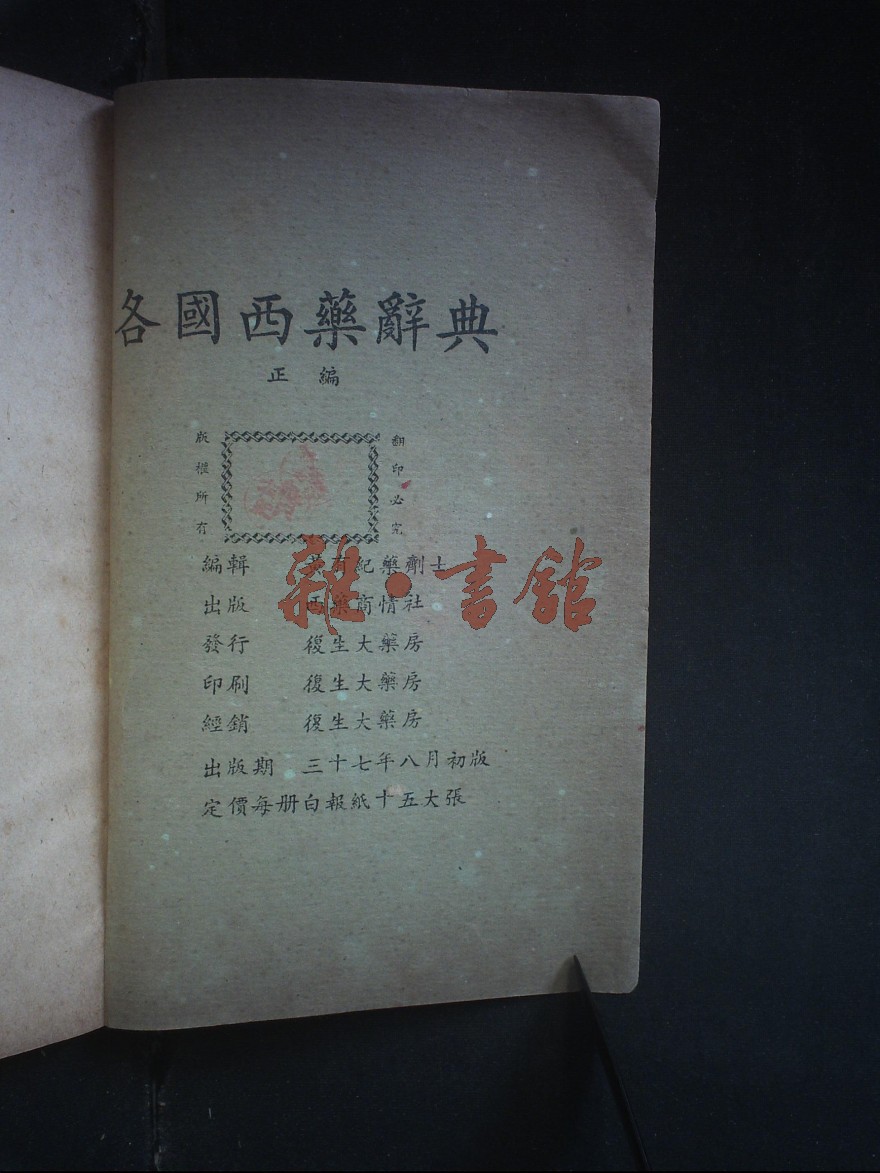 各國西藥辭典
正編
版權所有
翻印必究
編輯 黃有紀藥劑士
出版 西藥商情社
發行 復生大藥房
印刷 復生大藥房
經銷 復生大藥房
出版期 三十七年八月初版
定價每册白報紙十五大張
雜·書館